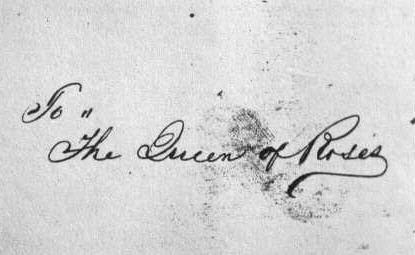 To "
The Queen of Roses